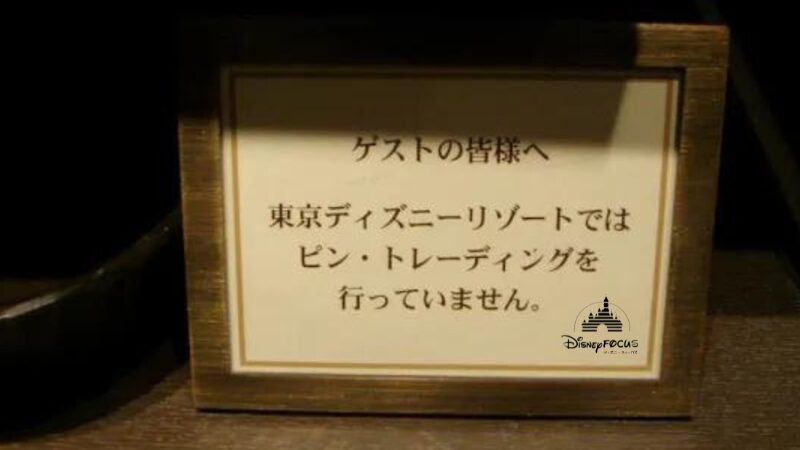 ゲストの皆様へ
東京ディズニーリゾートでは
ピン・トレーディングを
行っていません。
DISNEY FOCUS